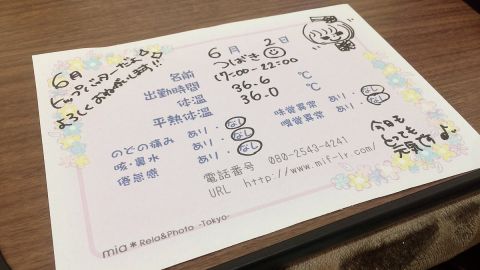 6月 2日
6月
トップバッターだよ
よろしくおねがいします!!
名前 つばき
出勤時間 17:00-22:00
体温 36.6 ℃
平熱体温 36.0 ℃
のどの痛み あり・なし
咳・鼻水 あり・なし
倦怠感 あり・なし
味覚異常 あり・なし
嗅覚異常 あり・なし
今日も
とっても
元気です♪
電話番号 080-2543-4241
URL http://www.mif-lr.com/
mia*Rela&Photo -Tokyo-